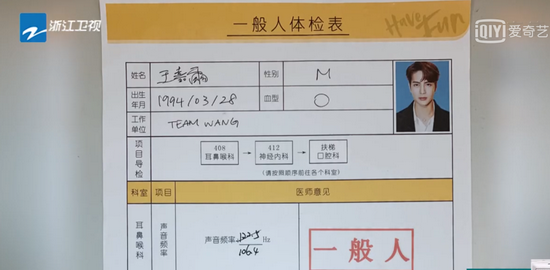 浙江卫视
一般人体检表
Have Fun
iQIYI 爱奇艺
姓名 王嘉爾 性别 M
出生年月 1994/03/28 血型 O
工作单位 TEAM WANG
项目导检 408 耳鼻喉科 → 412 神经内科 → 扶梯 口腔科
(请按照顺序前往各个科室)
科室 项目 医师意见
耳鼻喉科 声音频率 声音频率 122.5/106.4 Hz
一般人